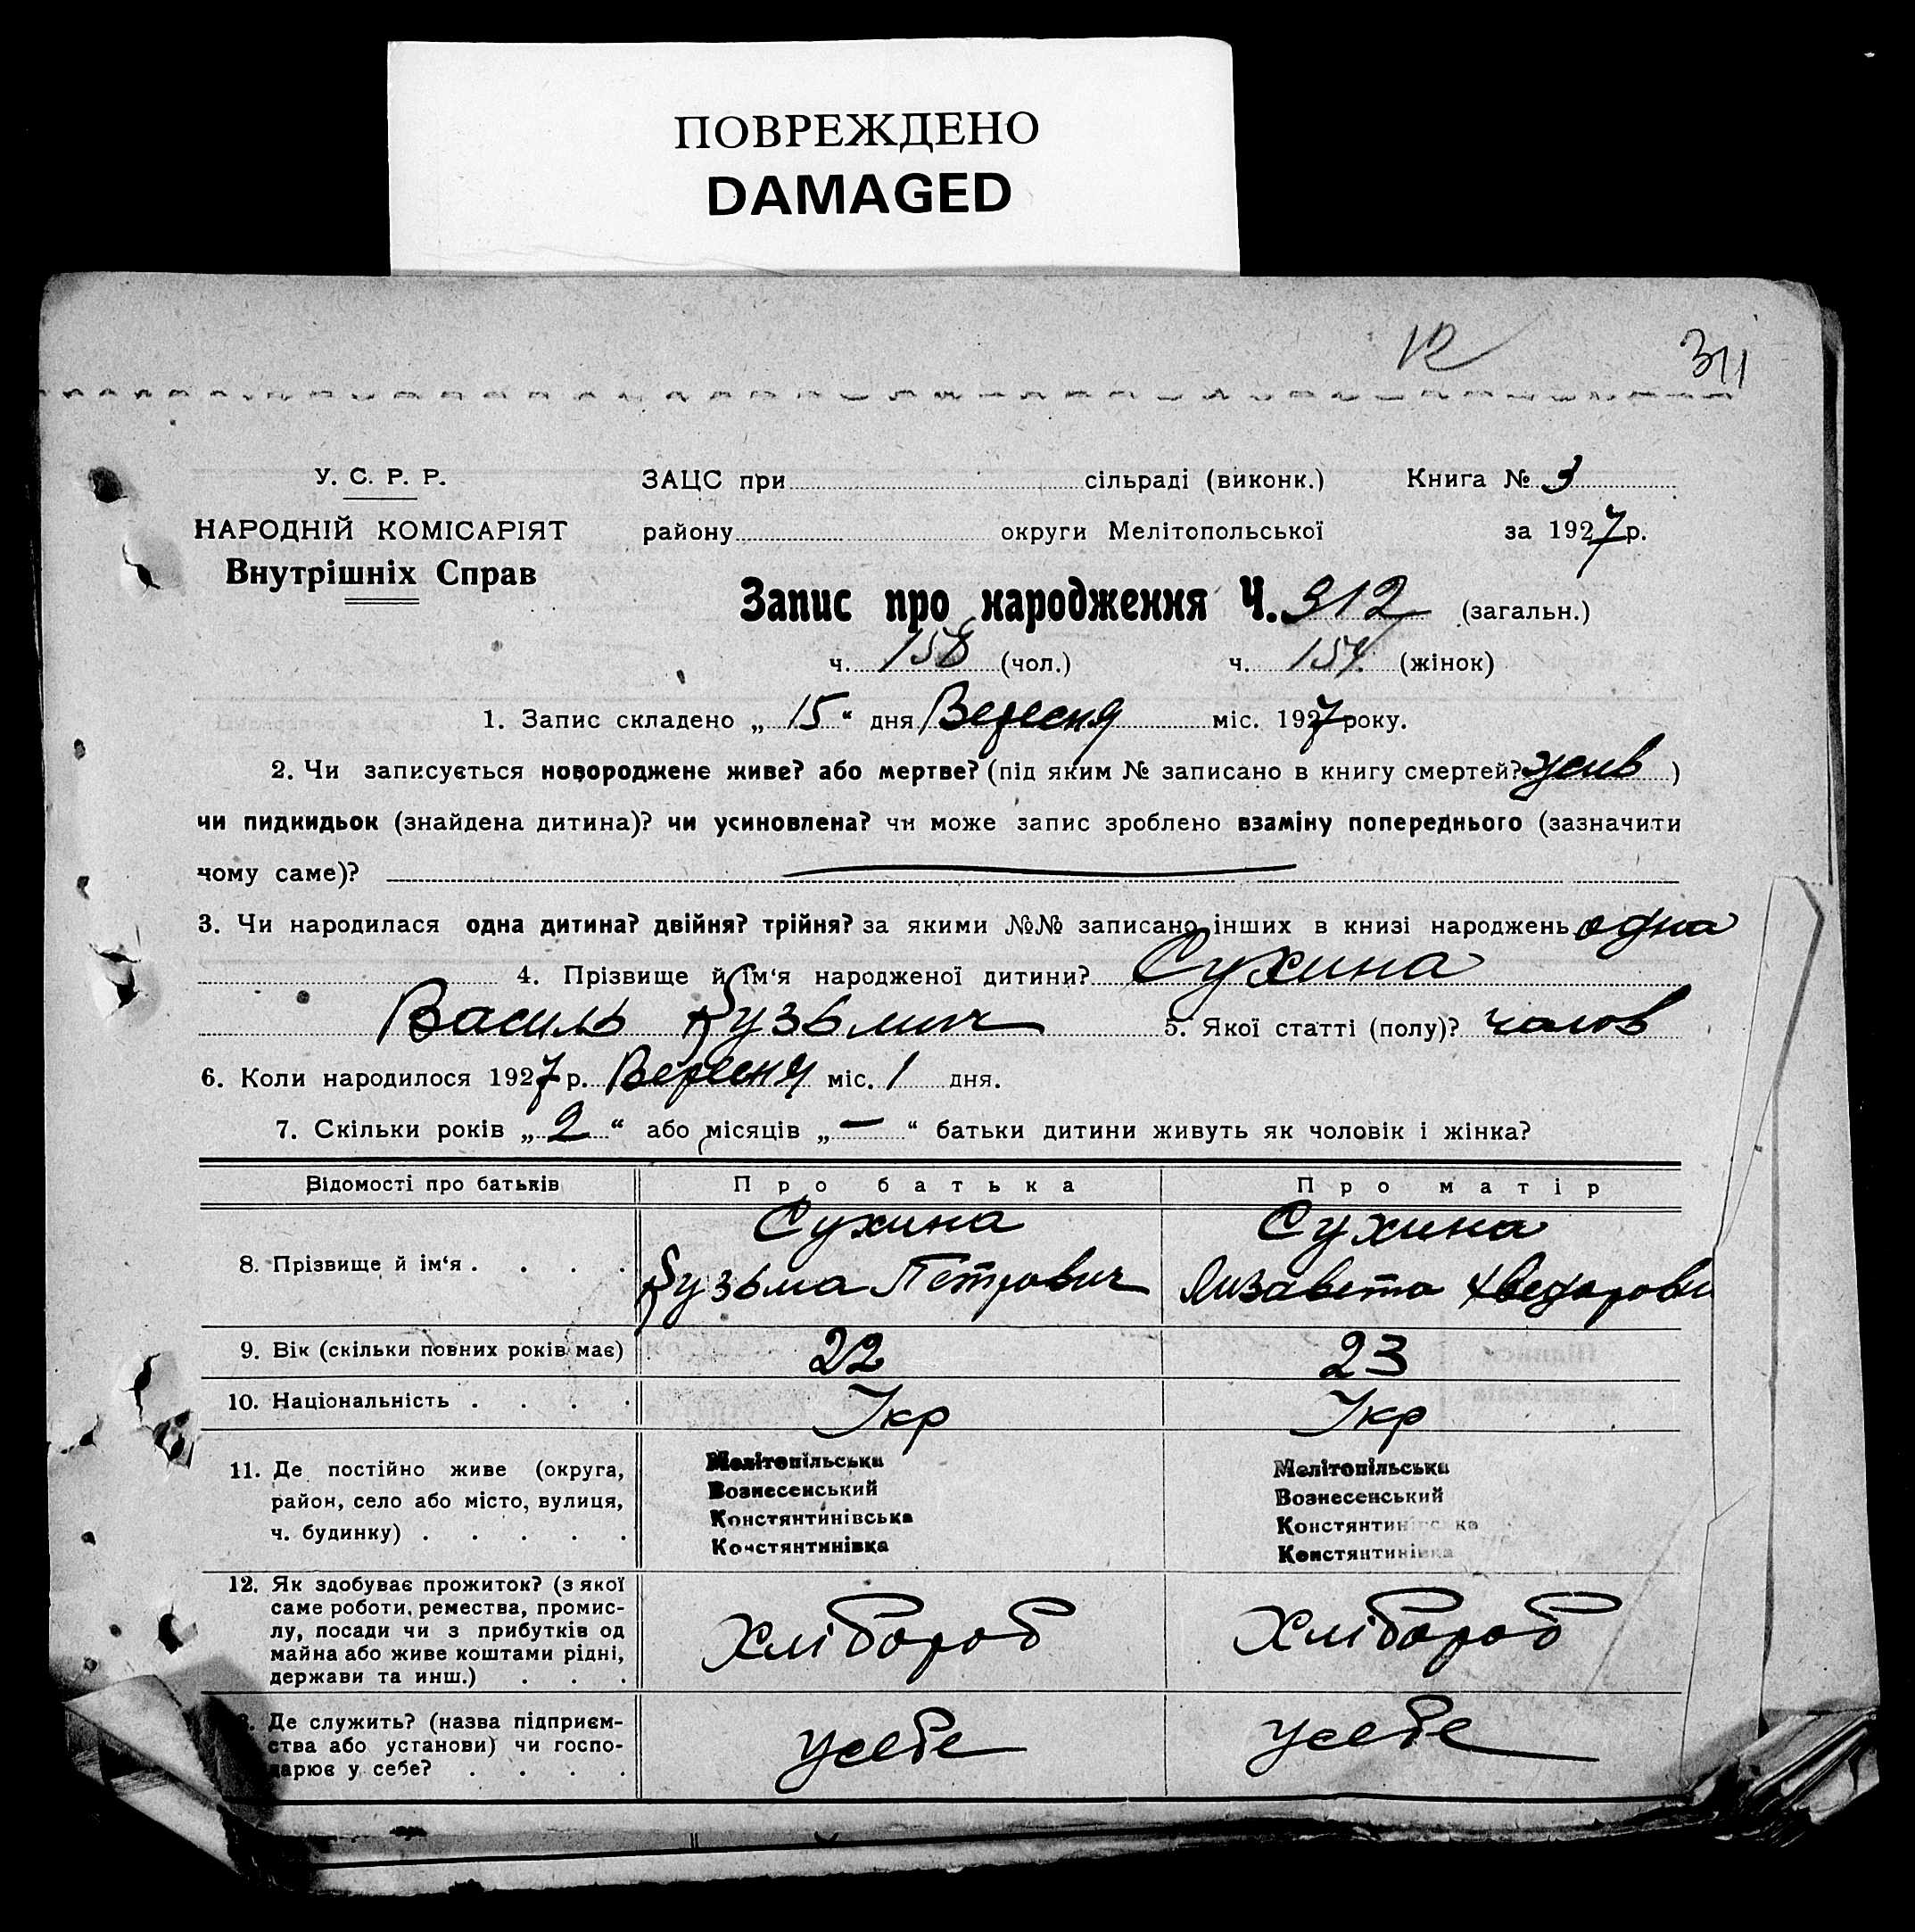 ПОВРЕЖДЕНО
DAMAGED
12
311
У. С. Р. Р.
ЗАЦС при сільраді (виконк.) Книга № 3
НАРОДНІЙ КОМІСАРІЯТ
району округи Мелітопольської за 1927 р.
Внутрішніх Справ
Запис про народження Ч. 312 (загальн.)
ч. 158 (чол.) ч. 154 (жінок)
1. Запис складено „ 15 “ дня Вересня міс. 1927 року.
2. Чи записується новороджене живе? або мертве? (під яким № записано в книгу смертей? жив )
чи пидкидьок (знайдена дитина)? чи усиновлена? чи може запис зроблено взаміну попереднього (зазначити
чому саме)?
3. Чи народилася одна дитина? двійня? трійня? за якими №№ записано інших в книзі народжень одна
4. Прізвище й ім‘я народженої дитини? Сухина
Василь Кузьмич 5. Якої статті (полу)? чолов
6. Коли народилося 1927 р. Вересня міс. 1 дня.
7. Скільки років „ 2 “ або місяців „ — “ батьки дитини живуть як чоловік і жінка?
Відомості про батьків Про батька Про матір
8. Прізвище й ім‘я . . . . Сухина Сухина
Кузьма Петрович Лизавета Хведорови
9. Вік (скільки повних років має) 22 23
10. Національність . . . . Укр Укр
11. Де постійно живе (округа, район, село або місто, вулиця, ч. будинку) . . . . .
Мелітопільська Мелітопільська
Вознесенський Вознесенський
Констянтинівська Констянтинівська
Констянтинівка Констянтинівка
12. Як здобуває прожиток? (з якої
саме роботи, ремества, промис-
лу, посади чи з прибутків од
майна або живе коштами рідні,
держави та инш.) . . .
Хлібороб Хлібороб
Де служить? (назва підприєм-
ства або установи) чи госпо-
дарює у себе? . . . .
у себе у себе